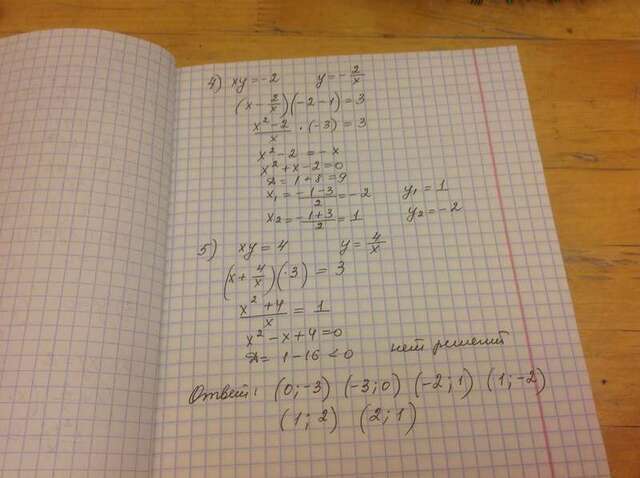 4) xy = -2 y = -2/x
(x - 2/x)(-2-1) = 3
(x² - 2)/x · (-3) = 3
x² - 2 = -x
x² + x - 2 = 0
D = 1 + 8 = 9
x₁ = (-1-3)/2 = -2 y₁ = 1
x₂ = (-1+3)/2 = 1 y₂ = -2
5) xy = 4 y = 4/x
(x + 4/x)(·3) = 3
(x² + 4)/x = 1
x² - x + 4 = 0
D = 1 - 16 < 0 нет решений
Ответ: (0; -3) (-3; 0) (-2; 1) (1; -2)
(1; 2) (2; 1)